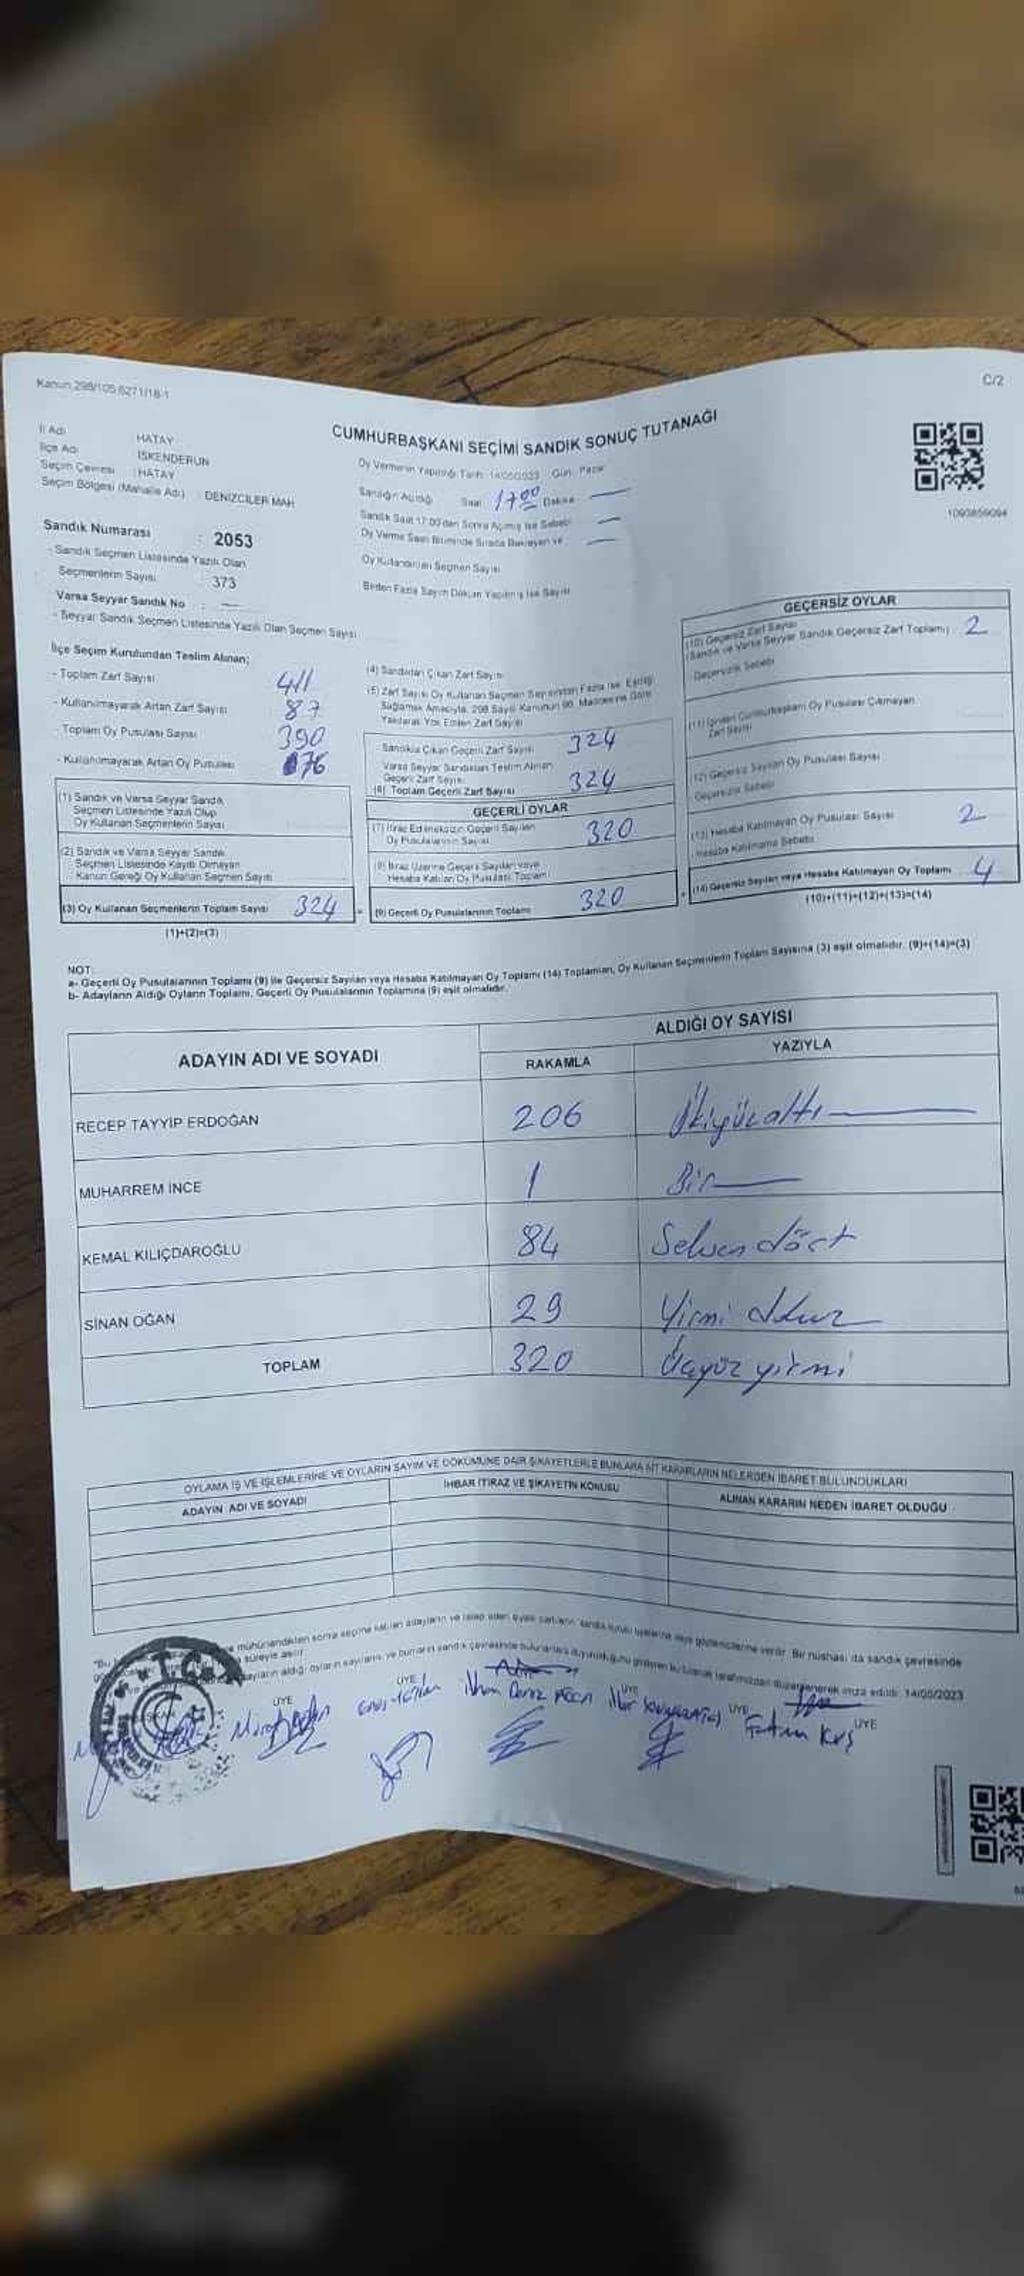 Kanun 298/105,6271/18-1
C/2
CUMHURBAŞKANI SEÇİMİ SANDIK SONUÇ TUTANAĞI
İl Adı : HATAY
İlçe Adı : İSKENDERUN
Seçim Çevresi : HATAY
Seçim Bölgesi (Mahalle Adı) : DENİZCİLER MAH
Oy Vermenin Yapıldığı Tarih: 14/05/2023 Gün: Pazar
Sandığın Açıldığı Saat 17 00 Dakika —
Sandık Saat 17:00'den Sonra Açılmış İse Sebebi —
Oy Verme Saati Bitiminde Sırada Bekleyen ve —
Oy Kullandırılan Seçmen Sayısı
Birden Fazla Sayım Döküm Yapılmış İse Sayısı
1093859094
Sandık Numarası : 2053
- Sandık Seçmen Listesinde Yazılı Olan
Seçmenlerin Sayısı 373
Varsa Seyyar Sandık No : —
- Seyyar Sandık Seçmen Listesinde Yazılı Olan Seçmen Sayısı
İlçe Seçim Kurulundan Teslim Alınan;
- Toplam Zarf Sayısı 411
- Kullanılmayarak Artan Zarf Sayısı 87
- Toplam Oy Pusulası Sayısı 390
- Kullanılmayarak Artan Oy Pusulası 76
(1) Sandık ve Varsa Seyyar Sandık
Seçmen Listesinde Yazılı Olup
Oy Kullanan Seçmenlerin Sayısı
(2) Sandık ve Varsa Seyyar Sandık
Seçmen Listesinde Kayıtlı Olmayan
Kanun Gereği Oy Kullanan Seçmen Sayısı
(3) Oy Kullanan Seçmenlerin Toplam Sayısı 324
(1)+(2)=(3)
(4) Sandıktan Çıkan Zarf Sayısı
(5) Zarf Sayısı Oy Kullanan Seçmen Sayısından Fazla İse, Eşitliği
Sağlamak Amacıyla, 298 Sayılı Kanunun 98. Maddesine Göre
Yakılarak Yok Edilen Zarf Sayısı
Sandıkta Çıkan Geçerli Zarf Sayısı 324
Varsa Seyyar Sandıktan Teslim Alınan
Geçerli Zarf Sayısı
(6) Toplam Geçerli Zarf Sayısı 324
GEÇERLİ OYLAR
(7) İtiraz Edilmeksizin Geçerli Sayılan
Oy Pusulalarının Sayısı 320
(8) İtiraz Üzerine Geçerli Sayılan veya
Hesaba Katılan Oy Pusulası Toplamı
(9) Geçerli Oy Pusulalarının Toplamı 320
GEÇERSİZ OYLAR
(10) Geçersiz Zarf Sayısı
(Sandık ve Varsa Seyyar Sandık Geçersiz Zarf Toplamı) 2
Geçersizlik Sebebi
(11) İçinden Cumhurbaşkanı Oy Pusulası Çıkmayan
Zarf Sayısı
(12) Geçersiz Sayılan Oy Pusulası Sayısı
Geçersizlik Sebebi
(13) Hesaba Katılmayan Oy Pusulası Sayısı 2
Hesaba Katılmama Sebebi
(14) Geçersiz Sayılan veya Hesaba Katılmayan Oy Toplamı 4
(10)+(11)+(12)+(13)=(14)
NOT:
a- Geçerli Oy Pusulalarının Toplamı (9) ile Geçersiz Sayılan veya Hesaba Katılmayan Oy Toplamı (14) Toplamları, Oy Kullanan Seçmenlerin Toplam Sayısına (3) eşit olmalıdır. (9)+(14)=(3)
b- Adayların Aldığı Oyların Toplamı, Geçerli Oy Pusulalarının Toplamına (9) eşit olmalıdır.
ADAYIN ADI VE SOYADI
ALDIĞI OY SAYISI
RAKAMLA YAZIYLA
RECEP TAYYİP ERDOĞAN 206 İkiyüzaltı
MUHARREM İNCE 1 Bir
KEMAL KILIÇDAROĞLU 84 Seksen dört
SİNAN OĞAN 29 Yirmi dokuz
TOPLAM 320 Üçyüz yirmi
OYLAMA İŞ VE İŞLEMLERİNE VE OYLARIN SAYIM VE DÖKÜMÜNE DAİR ŞİKAYETLERLE BUNLARA AİT KARARLARIN NELERDEN İBARET BULUNDUKLARI
ADAYIN ADI VE SOYADI İHBAR İTİRAZ VE ŞİKAYETİN KONUSU ALINAN KARARIN NEDEN İBARET OLDUĞU
mühürlendikten sonra seçime katılan adayların ve talep eden siyasi partilerin sandık kurulu üyelerine veya gözlemcilerine verilir. Bir nüshası da sandık çevresinde
süreyle asılır.
düzenlenerek imza edildi. 14/05/2023
T.C.
ÜYE ÜYE ÜYE ÜYE ÜYE
Fatma Kuş